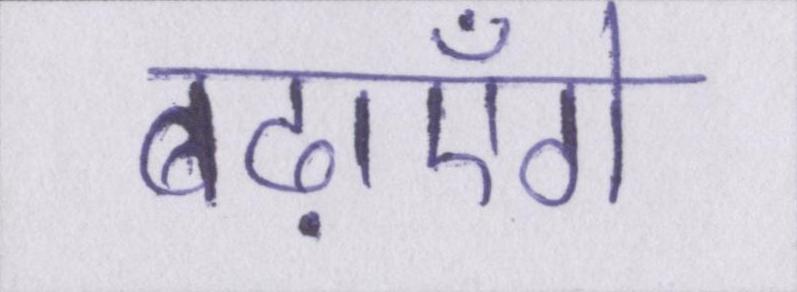 बढ़ाएँगे